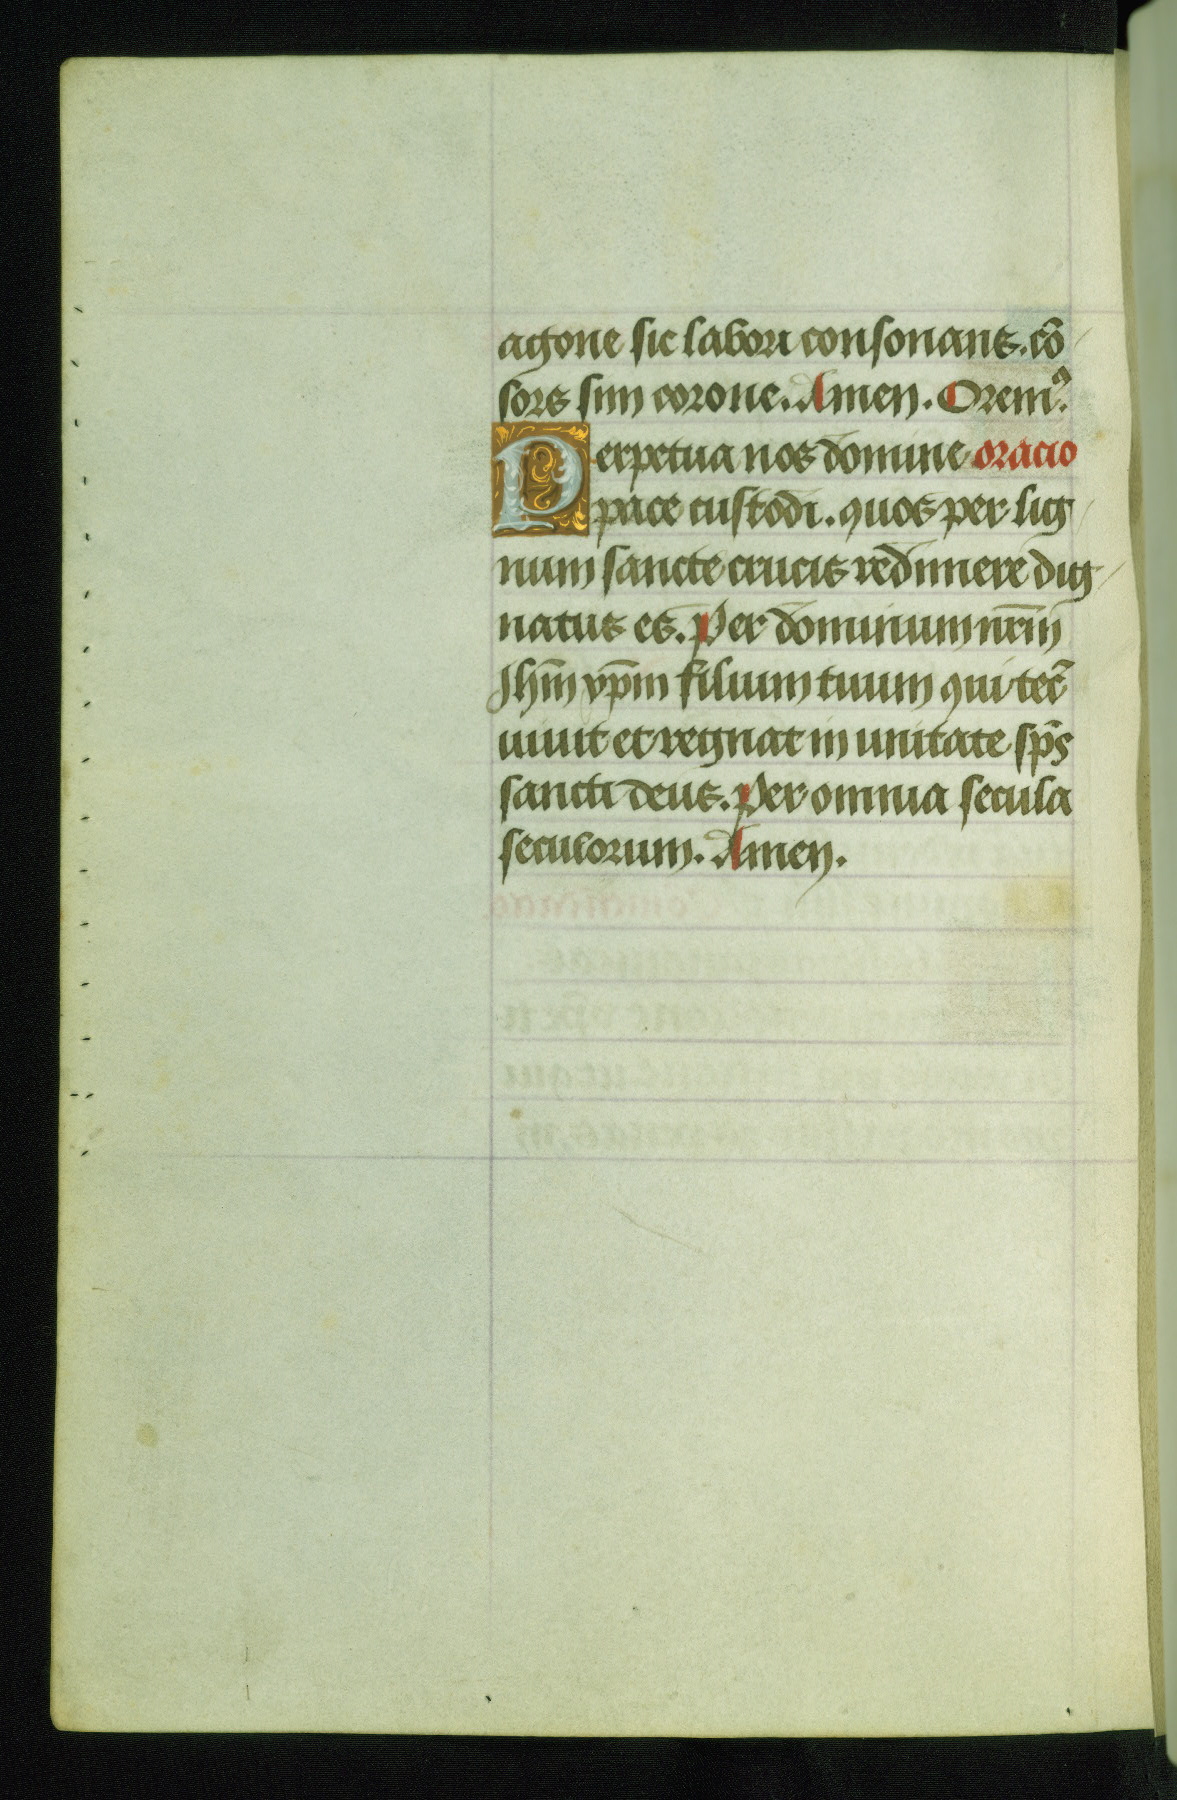 agone sic labori consonans. cō
sors sim corone. Amen. Orem⁹.
Perpetua nos domine oracio
pace custodi. quos per lig
num sancte crucis redimere dig
natus es. Per dominum nr̄m
Jhm̄ xp̄m filium tuum qui tec̄
uiuit et regnat in unitate sp̄s
sancti deus. Per omnia secula
seculorum. Amen.